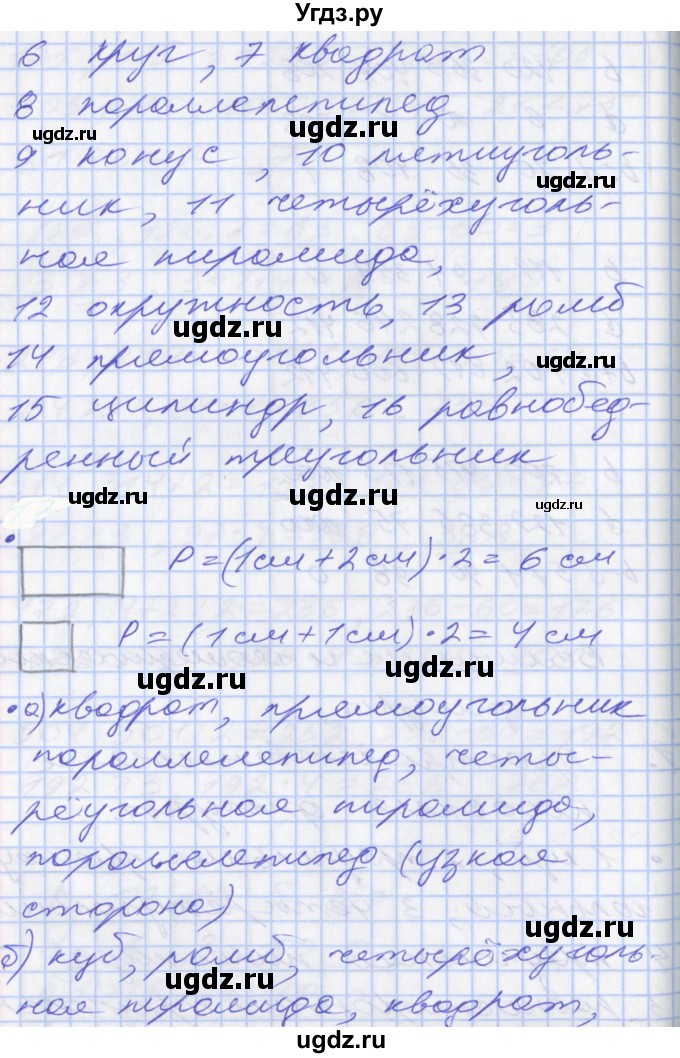 Угдз.ру
6 круг, 7 квадрат
8 пораллепепипед
ugdz.ru ugdz.ru
9 конус, 10 пятиуголь-
ugdz.ru
ник, 11 четырёхуголь-
ная пирамида,
12 окружность, 13 ромб
ugdz.ru
14 прямоугольник,
ugdz.ru
15 цилиндр, 16 равнобед-
ренный треугольник
ugdz.ru ugdz.ru ugdz.ru
P=(1см+2см)·2=6 см
ugdz.ru
P=(1см+1см)·2=4 см
ugdz.ru ugdz.ru
• а) квадрат, прямоугольник
параллелепипед, четы-
рёугольная пирамида,
ugdz.ru ugdz.ru
параллелепипед (узкая
сторона)
ugdz.ru
б) куб, ромб, четырёхуголь-
ugdz.ru
ная пирамида, квадрат,
ugdz.ru